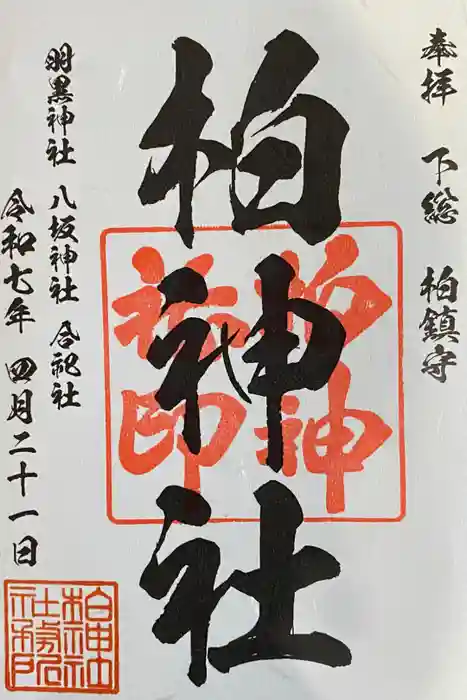 奉拝 下総 柏鎮守
柏神社
柏神
社印
羽黒神社 八坂神社 合祀社
令和七年 四月二十一日
柏神社
社務所
之印